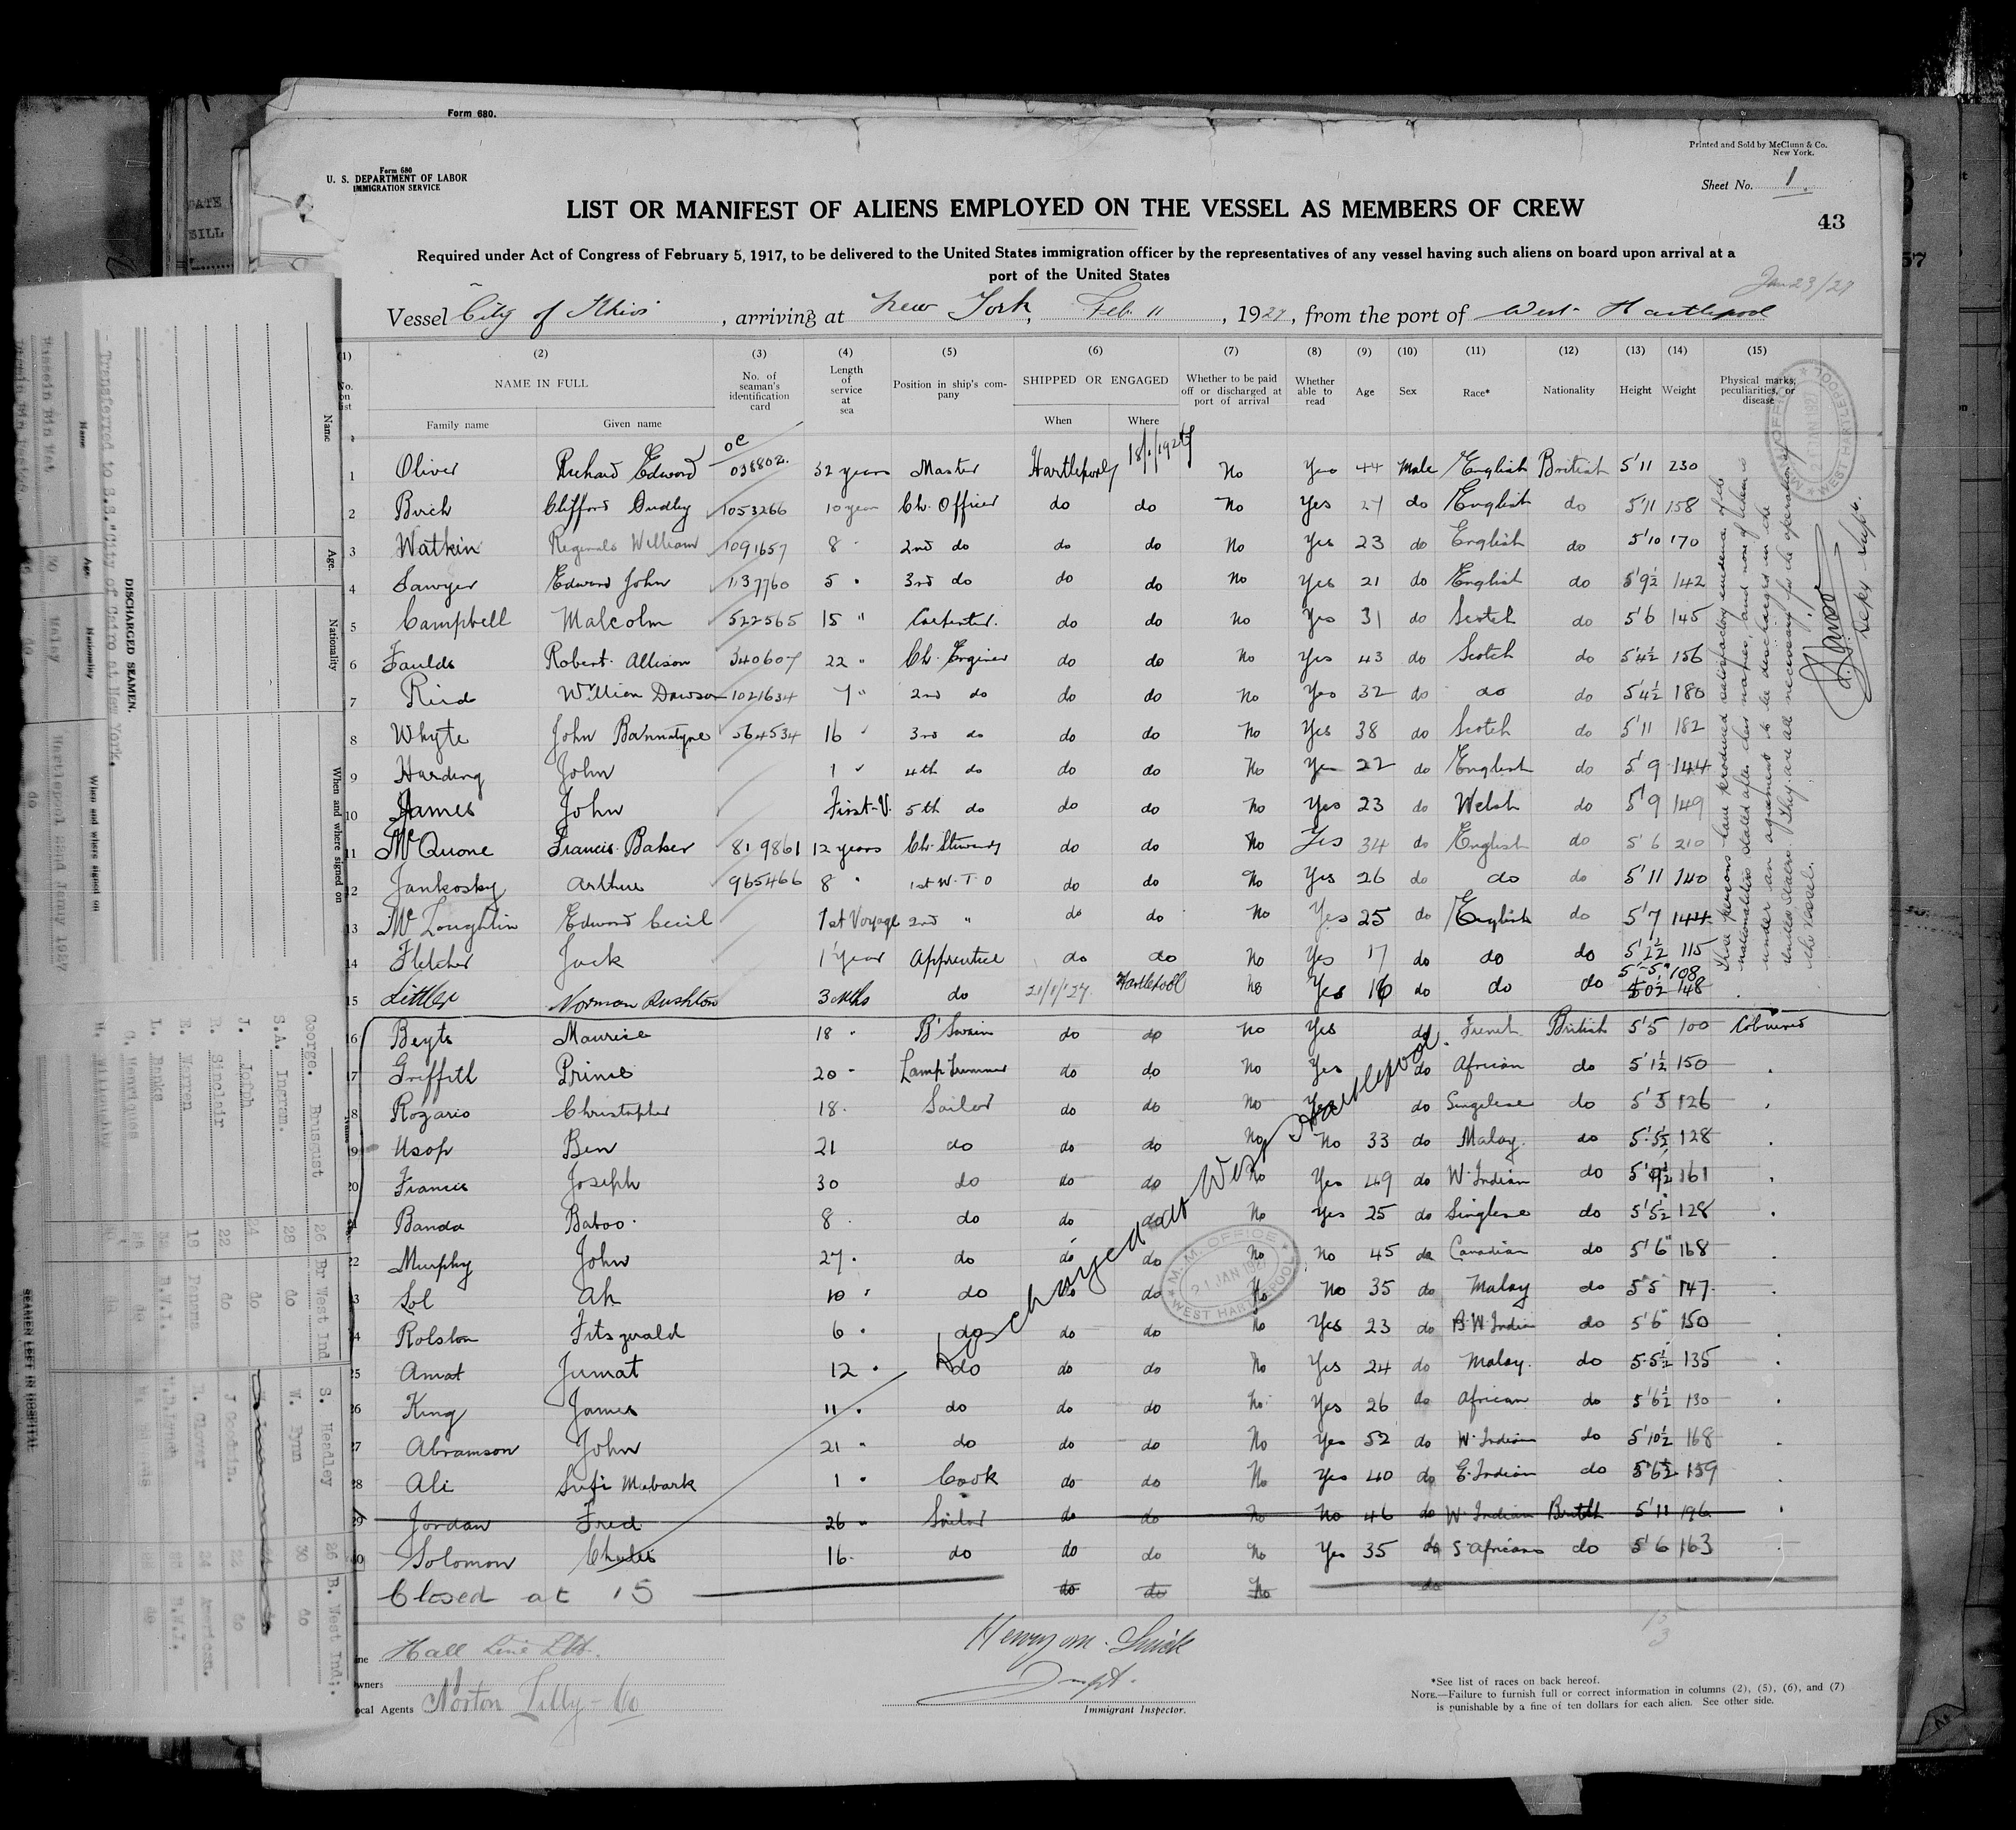 Form 680.
Form 680
U. S. DEPARTMENT OF LABOR
IMMIGRATION SERVICE
Printed and Sold by McClunn & Co.
New York.
Sheet No. 1
LIST OR MANIFEST OF ALIENS EMPLOYED ON THE VESSEL AS MEMBERS OF CREW
43
Required under Act of Congress of February 5, 1917, to be delivered to the United States immigration officer by the representatives of any vessel having such aliens on board upon arrival at a
port of the United States
Jan 23/27
Vessel City of , arriving at New York, Feb. 11, 1927, from the port of West Hartlepool
(1) (2) (3) (4) (5) (6) (7) (8) (9) (10) (11) (12) (13) (14) (15)
No. on list NAME IN FULL Family name Given name No. of seaman's identification card Length of service at sea Position in ship's company SHIPPED OR ENGAGED When Where Whether to be paid off or discharged at port of arrival Whether able to read Age Sex Race* Nationality Height Weight Physical marks, peculiarities, or disease
1 Oliver Richard Edward 038802 32 years Master Hartlepool 18/1/1927 No Yes 44 Male English British 5'11 230
2 Birch Clifford Dudley 1053266 10 year Ch. Officer do do No Yes 27 do English do 5'11 158
3 Watkin Reginald William 1091657 8 " 2nd do do do No Yes 23 do English do 5'10 170
4 Sawyer Edward John 1137760 5 " 3rd do do do No Yes 21 do English do 5'9½ 142
5 Campbell Malcolm 522565 15 " Carpenter. do do No Yes 31 do Scotch do 5'6 145
6 Faulds Robert Allison 340607 22 " Ch. Enginer do do No Yes 43 do Scotch do 5'4½ 156
7 Reid William Dawson 1021634 7 " 2nd do do do No Yes 32 do do do 5'4½ 180
8 Whyte John Bannatyne 564534 16 " 3rd do do do No Yes 38 do Scotch do 5'11 182
9 Harding John 1 " 4th do do do No Yes 22 do English do 5'9 144
10 James John First-V. 5th do do do No Yes 23 do Welsh do 5'9 149
11 McQuone Francis Baker 819861 12 years Ch. Steward do do No Yes 34 do English do 5'6 210
12 Jankosky Arthur 965466 8 " 1st W.T.O do do No Yes 26 do do do 5'11 140
13 McLoughlin Edward Cecil 1st Voyage 2nd " do do No Yes 25 do English do 5'7 144
14 Fletcher Jack 1 Year Apprentice do do No Yes 17 do do do 115
15 Littler Norman Rushton 3 mths do 21/1/27 Hartlepool No Yes 16 do do do 5'-5" 108
16 Beyts Maurice 18 " B'Swain do do No Yes do French British 5'5 100 Coloured
17 Griffith Prince 20 " Lamp Trimmer do do No Yes do African do 5'1½ 150 "
18 Rozario Christopher 18 " Sailor do do No Yes do Singelese do 5'5 126 "
19 Usop Ben 21 do do do No No 33 do Malay. do 5'5½ 128 "
20 Francis Joseph 30 do do do No Yes 49 do W. Indian do 161 "
21 Banda Baboo. 8 " do do do No Yes 25 do Singlese do 5'5½ 128 "
22 Murphy John 27 " do do do No No 45 do Canadian do 5'6" 168 "
23 Sol Ah 10 " do do do No No 35 do Malay do 5'5" 147 "
24 Rolston Fitzgerald 6 " do do do No Yes 23 do B.W. Indian do 5'6" 150 "
25 Amat Jumat 12 " do do do No Yes 24 do Malay. do 5'5½ 135 "
26 King James 11 " do do do No Yes 26 do African do 5'6½ 130 "
27 Abramson John 21 " do do do No Yes 52 do W. Indian do 5'10½ 168 "
28 Ali Sufi Mubark 1 " Cook do do No Yes 40 do E. Indian do 5'6½ 159 "
29 Jordan Fred 26 " Sailor do do No No 46 do W. Indian British 5'11 196 "
30 Solomon Charles 16 " do do do No Yes 35 do S. African do 5'6 163 "
Closed at 15 do do No do
Discharged at West Hartlepool.
M. M. OFFICE
21 JAN 1927
WEST HARTLEPOOL
These persons have produced satisfactory evidence of the
nationalities stated after their names, and none of them is
under an agreement to be discharged in the
United States. They are all necessary for the operation of
the vessel.
Depy. Supt.
Line Hall Line Ltd.
Owners
Local Agents Norton Lilly & Co
Immigrant Inspector.
*See list of races on back hereof.
NOTE.—Failure to furnish full or correct information in columns (2), (5), (6), and (7)
is punishable by a fine of ten dollars for each alien. See other side.
DISCHARGED SEAMEN.
Transferred to S.S. "City of Cairo at New York.
Name Age. Nationality When and where signed on
George. Brusgist 26 Br West Ind
S.A. Ingram. 28 do
J. Joseph 24 do
R. Sinclair 22 do
E. Warren 18 Panama
L. Banks
S. Headley 26 B. West Ind:.
W. Fynn 30 do
J Goodin. 22 do